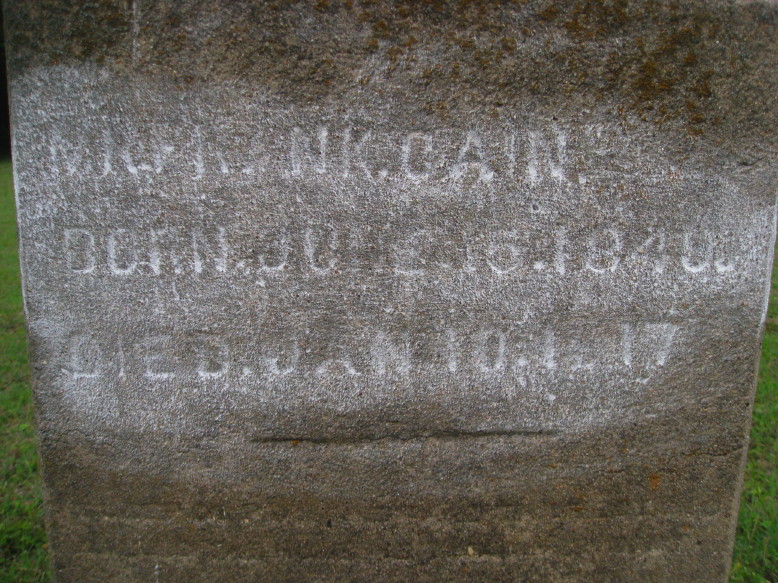 CAIN.
BORN. JUNE. 16. 1840.
DIED. JAN 10. 1917